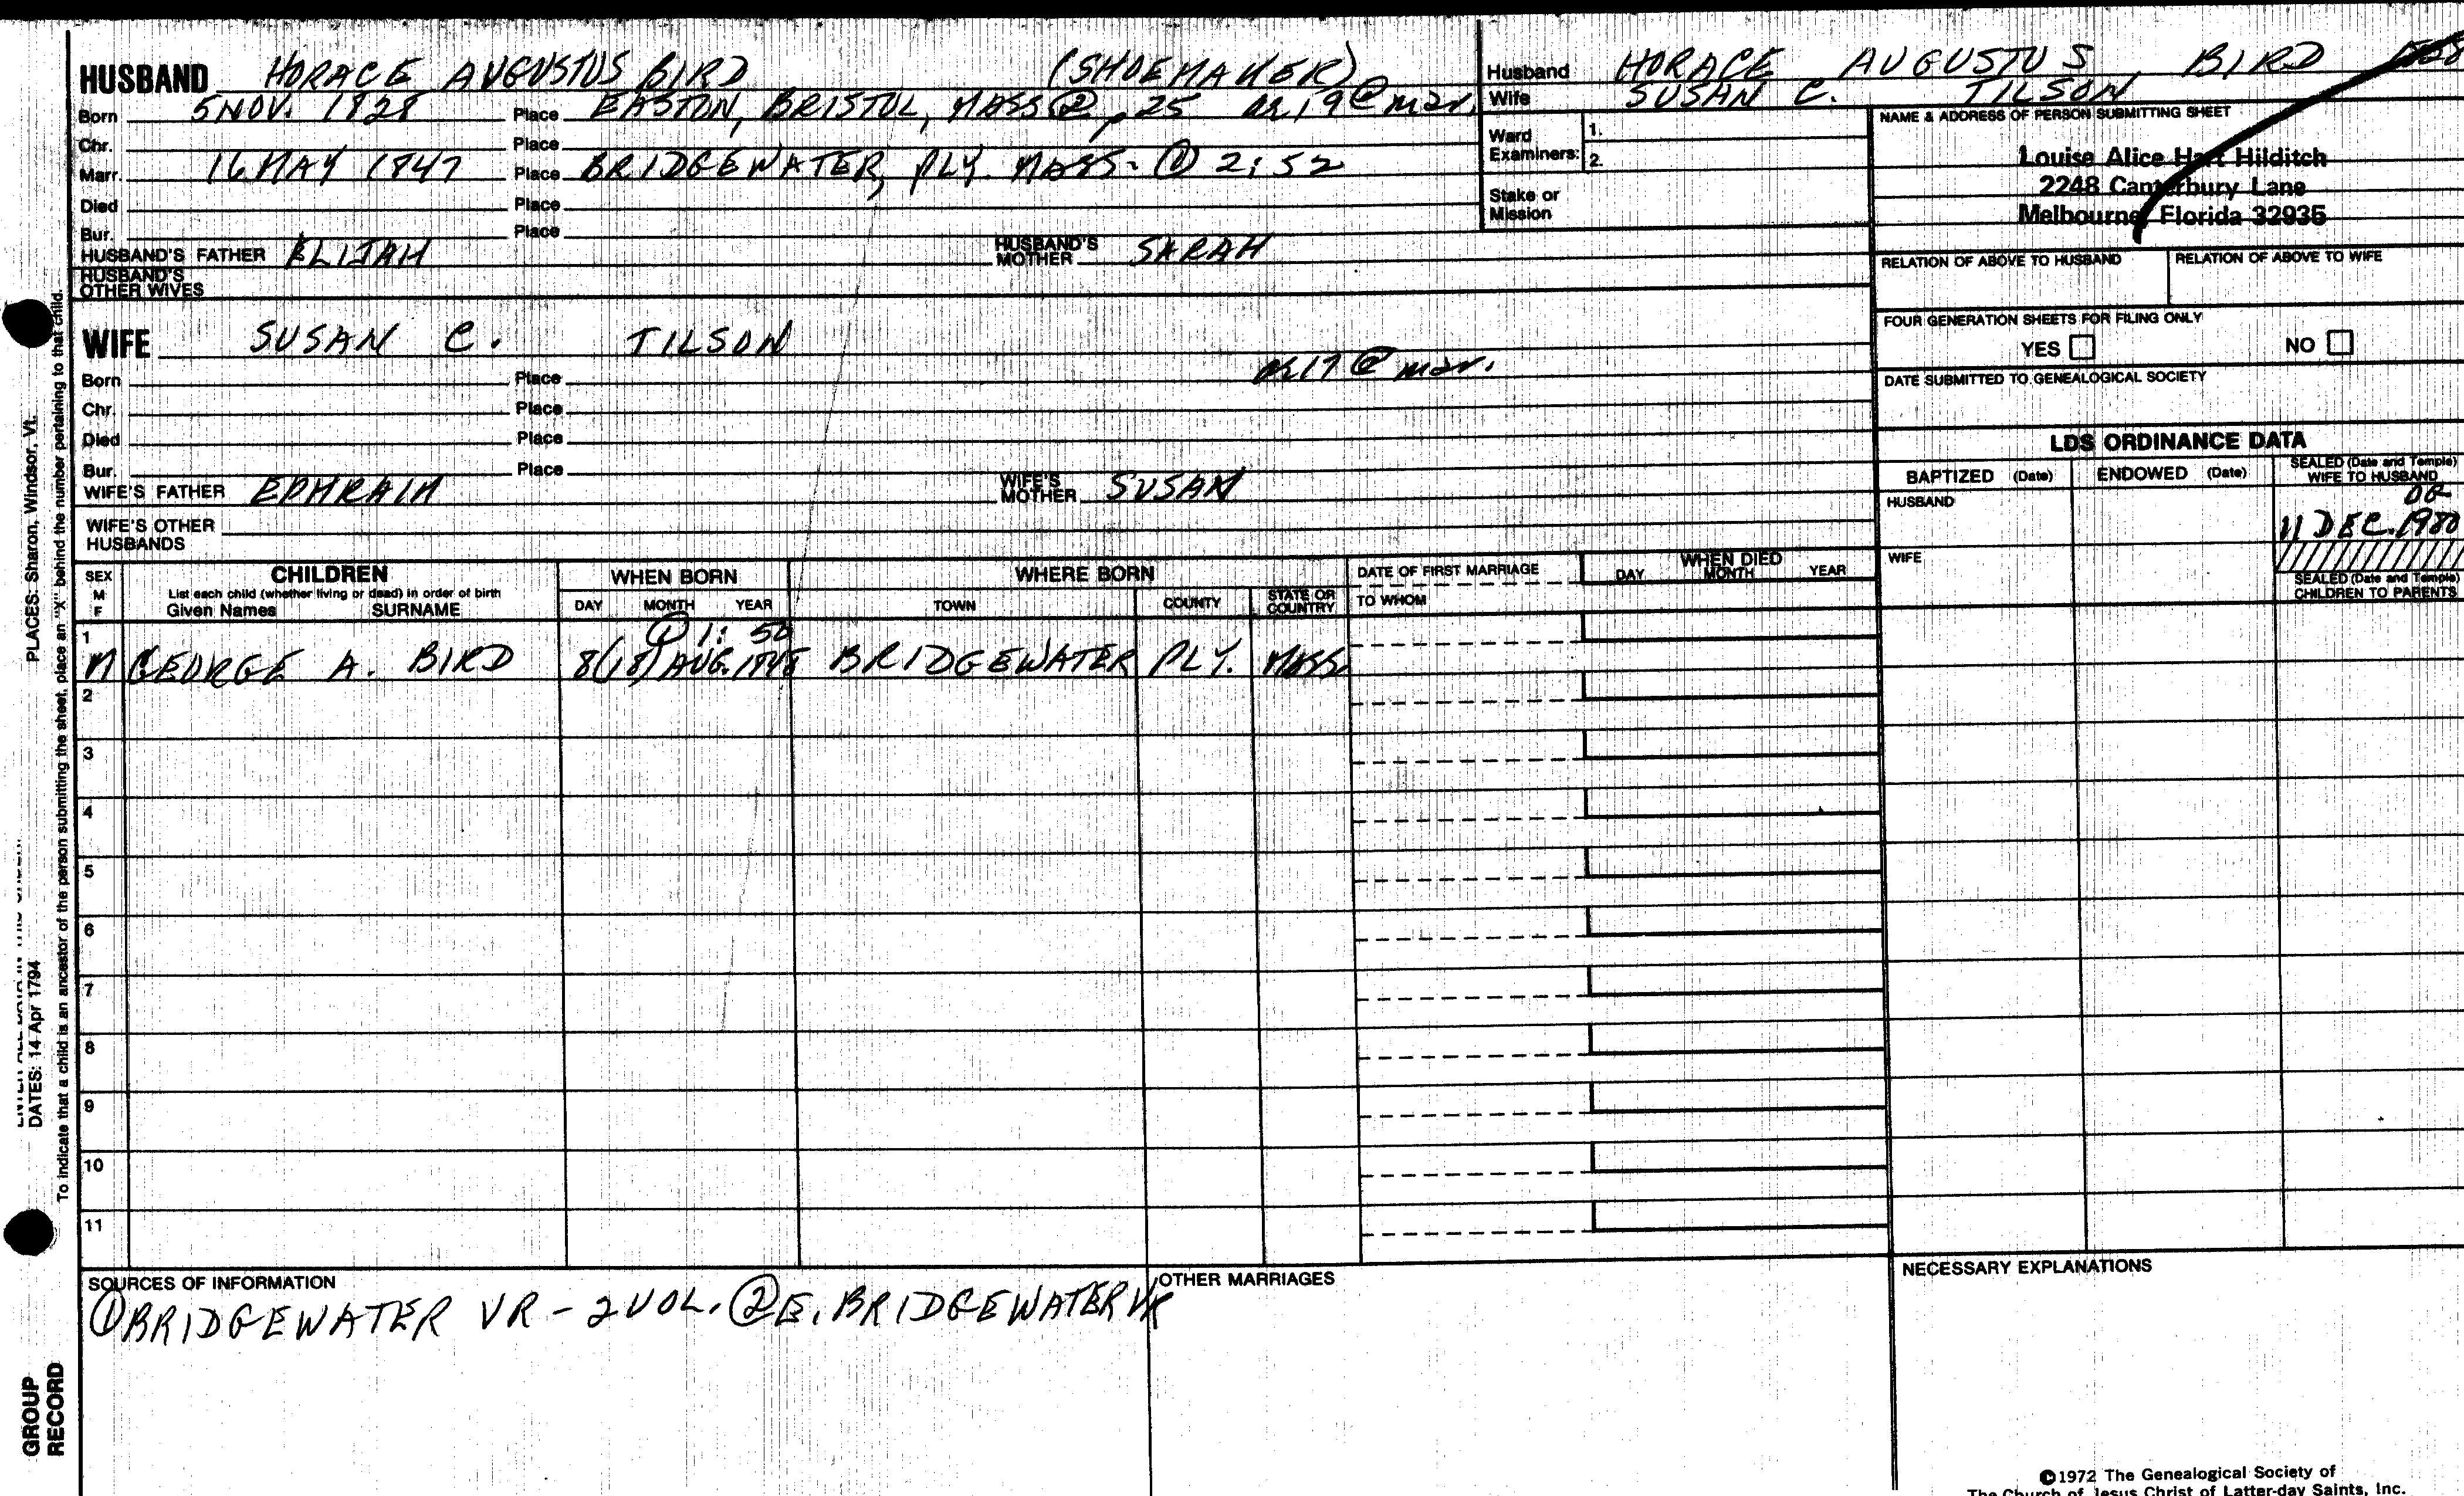 HUSBAND HORACE AUGUSTUS BIRD (SHOEMAKER)
Born 5 NOV. 1828 Place EASTON, BRISTOL, MASS ② p 25 19 @ mar.
Chr. Place
Marr. 16 MAY 1847 Place BRIDGEWATER, PLY. MASS- ① 2:52
Died Place
Bur. Place
HUSBAND'S FATHER ELIJAH HUSBAND'S MOTHER SARAH
HUSBAND'S OTHER WIVES
WIFE SUSAN C. TILSON
17 @ mar.
Born Place
Chr. Place
Died Place
Bur. Place
WIFE'S FATHER EPHRAIM WIFE'S MOTHER SUSAN
WIFE'S OTHER HUSBANDS
Husband HORACE AUGUSTUS BIRD
Wife SUSAN C. TILSON
Ward Examiners: 1.
2.
Stake or Mission
NAME & ADDRESS OF PERSON SUBMITTING SHEET
Louise Alice Hart Hilditch
2248 Canterbury Lane
Melbourne, Florida 32935
RELATION OF ABOVE TO HUSBAND RELATION OF ABOVE TO WIFE
FOUR GENERATION SHEETS FOR FILING ONLY
YES NO
DATE SUBMITTED TO GENEALOGICAL SOCIETY
LDS ORDINANCE DATA
BAPTIZED (Date) ENDOWED (Date) SEALED (Date and Temple) WIFE TO HUSBAND
HUSBAND
11 DEC. 1980
WIFE
SEALED (Date and Temple) CHILDREN TO PARENTS
SEX M F
CHILDREN
List each child (whether living or dead) in order of birth
Given Names SURNAME
WHEN BORN
DAY MONTH YEAR
WHERE BORN
TOWN COUNTY STATE OR COUNTRY
DATE OF FIRST MARRIAGE
TO WHOM
WHEN DIED
DAY MONTH YEAR
① 1:50
1 M GEORGE A. BIRD 8(18) AUG. 1848 BRIDGEWATER PLY. MASS.
2
3
4
5
6
7
8
9
10
11
SOURCES OF INFORMATION
① BRIDGEWATER VR - 2 VOL. ② E. BRIDGEWATER VR
OTHER MARRIAGES
NECESSARY EXPLANATIONS
©1972 The Genealogical Society of
The Church of Jesus Christ of Latter-day Saints, Inc.
PLACES: Sharon, Windsor, Vt.
DATES: 14 Apr 1794
To indicate that a child is an ancestor of the person submitting the sheet, place an "X" behind the number pertaining to that child.
GROUP
RECORD